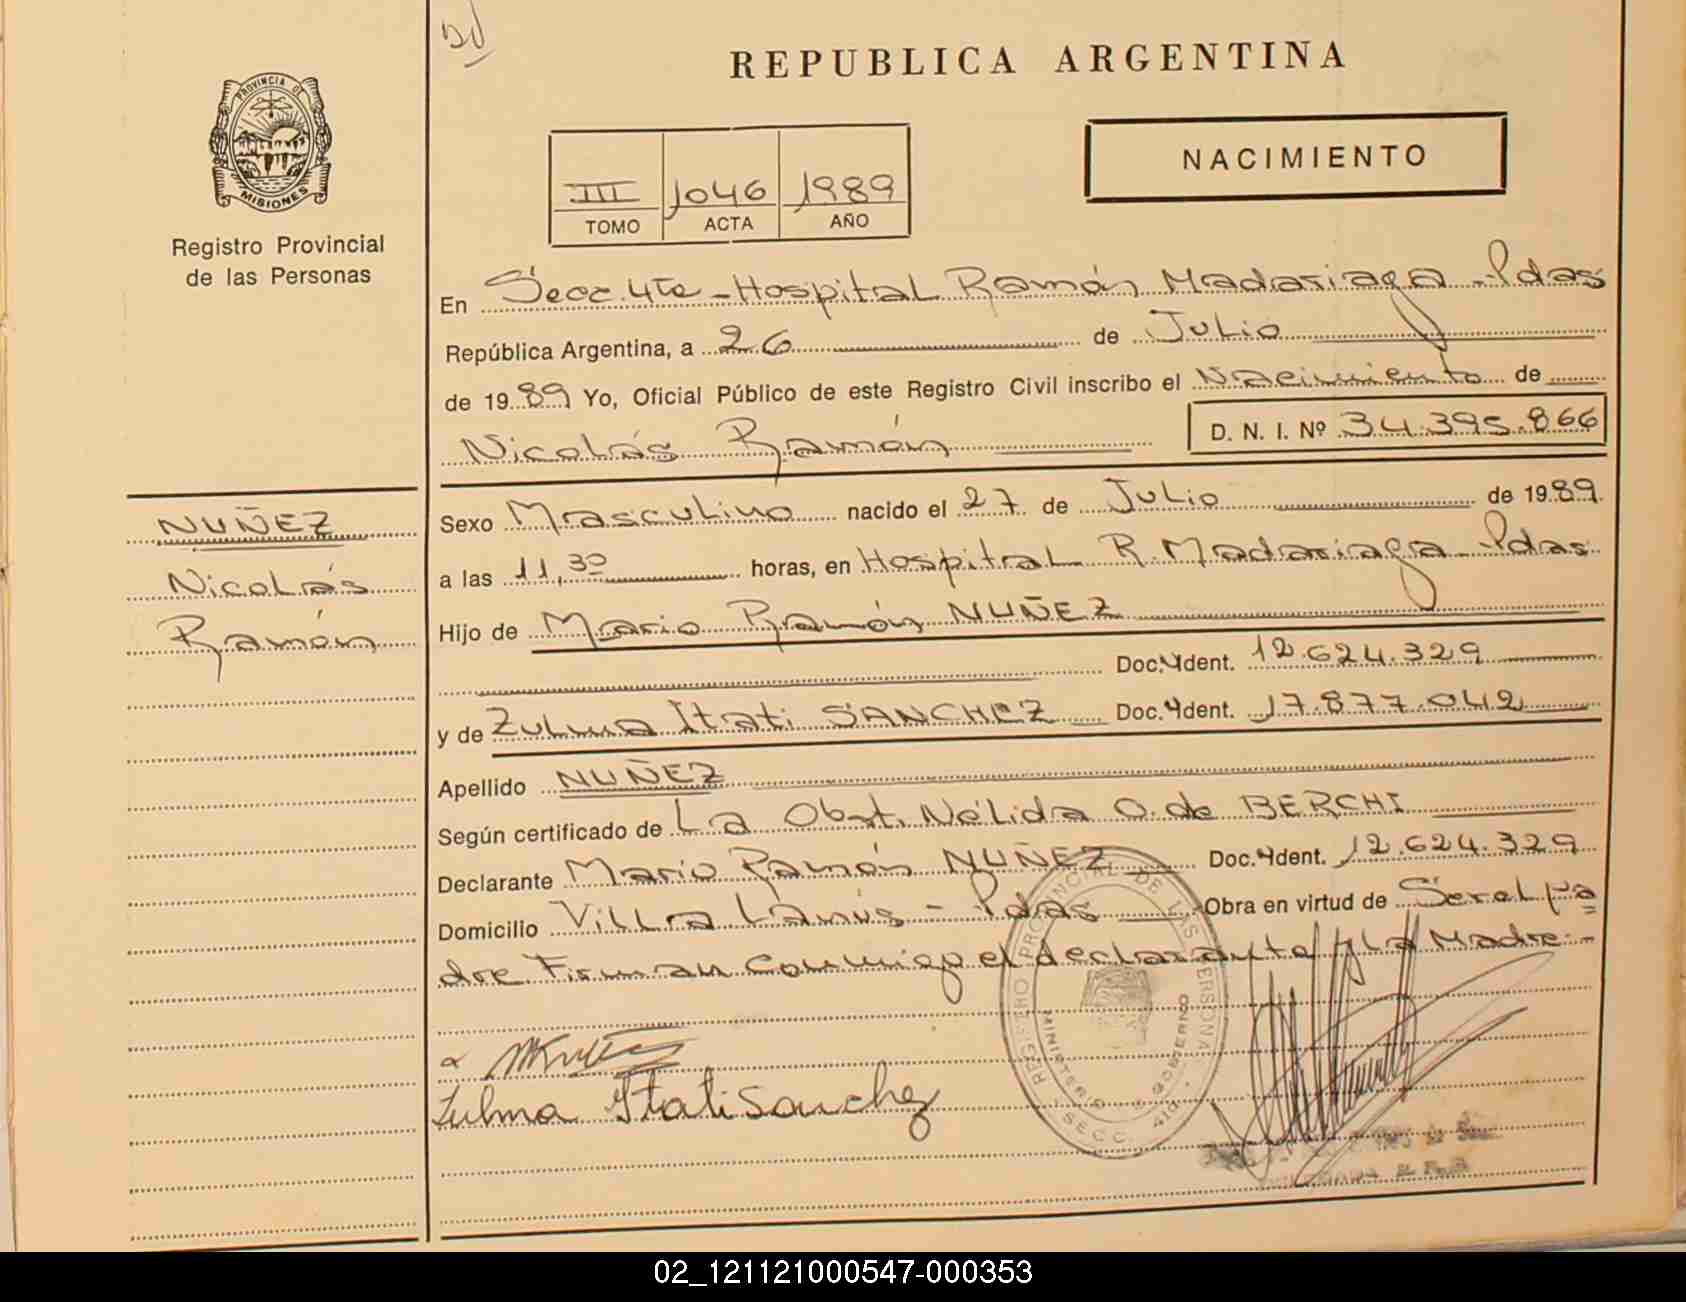 REPUBLICA ARGENTINA
PROVINCIA DE MISIONES
Registro Provincial
de las Personas
III 1046 1989
TOMO ACTA AÑO
NACIMIENTO
En Secc. 4ta - Hospital Ramón Madariaga - Pdas
República Argentina, a 26 de Julio
de 1989 Yo, Oficial Público de este Registro Civil inscribo el Nacimiento de
Nicolás Ramón D. N. I. Nº 34.395.866
NUÑEZ
Nicolás
Ramón
Sexo Masculino nacido el 27 de Julio de 1989.
a las 11,30 horas, en Hospital R. Madariaga - Pdas.
Hijo de Mario Ramón NUÑEZ
Doc. Ident. 12.624.329
y de Zulma Itati SANCHEZ Doc. Ident. 17.877.042
Apellido NUÑEZ
Según certificado de La Obst. Nélida O. de BERCHI
Declarante Mario Ramón NUÑEZ Doc. Ident. 12.624.329
Domicilio Villa Lanús - Pdas Obra en virtud de Ser el pa
dre Firman conmigo el declarante y la Madre -
Zulma Itati Sanchez
REGISTRO PROVINCIAL DE LAS PERSONAS
MINISTERIO DE GOBIERNO
SECC. 4ta
02_121121000547-000353